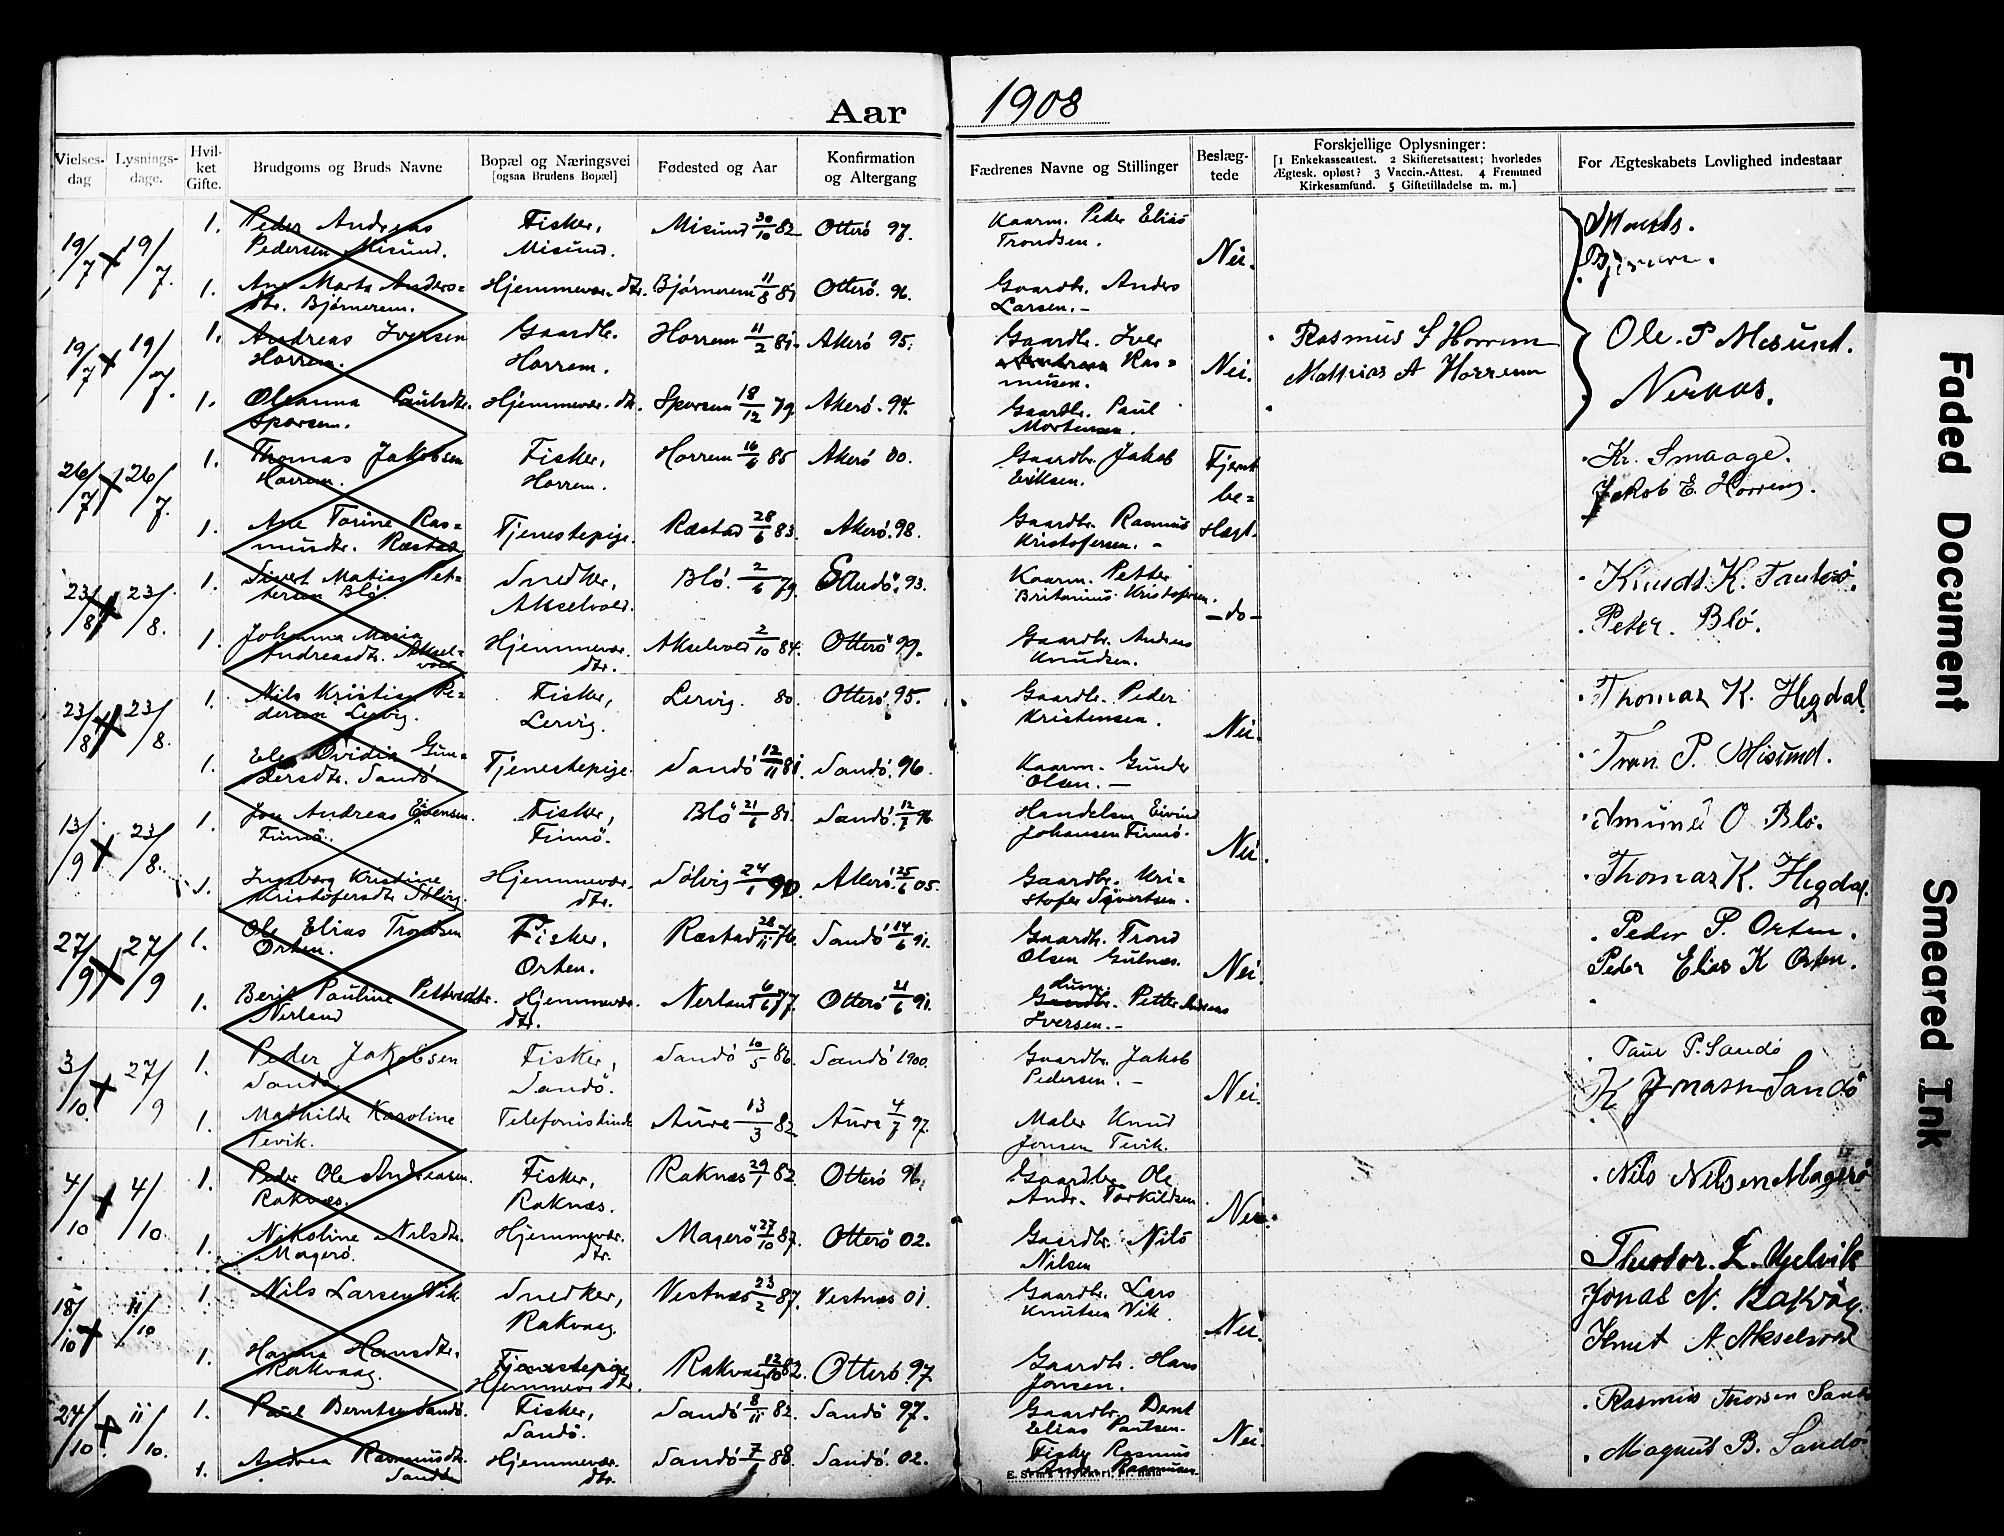 Aar 1908
Vielses-dag
Lysnings-dage.
Hvil-ket Gifte.
Brudgoms og Bruds Navne
Bopæl og Næringsvei
[ogsaa Brudens Bopæl]
Fødested og Aar
Konfirmation og Altergang
Fædrenes Navne og Stillinger
Beslæg-tede
Forskjellige Oplysninger:
[1 Enkekasseattest. 2 Skifteretsattest; hvorledes
Ægtesk. opløst? 3 Vaccin.-Attest. 4 Fremmed
Kirkesamfund. 5 Giftetilladelse m. m.]
For Ægteskabets Lovlighed indestaar
19/7 19/7 1. Peder Andreas Fisker, Misund 30/10 82 Otterö 97. Kaarm. Peder Elias
Pedersen Misund. Misund. Trondsen. Nei.
1. Ane Marta Anders= Hjemmevær. dtr. Bjørnerem 11/8 81 Otterö. 96. Gaardbr. Anders
dtr. Bjørnerem. Larsen.-
19/7 19/7. 1. Andreas Iversen Gaardbr. Horrem 11/2 81. Akerö 95. Gaardbr. Iver Rasmus S Horrem Ole. P Misund.
Horrem. Horrem. Ras=
musen. Nei. Mathias A Horrem
1. Oleanna Paulsdtr. Hjemmevær. dtr. Sporsem 18/12 79. Akerö. 94. Gaardbr. Paul
Sporsem. Mortensen.
26/7 26/7. 1. Thomas Jakobsen Fisker, Horrem 16/6 85 Akerö 00. Gaardbr. Jakob Fjernt Kr. Smaage.
Horrem. Horrem. Eriksen. be= Jakob E. Horrem.
1. Ane Torine Ras= Tjenestepige. Ræstad 28/6 83. Akerö. 98. Gaardbr. Rasmus slægt.
musdtr. Ræstad Kristofersen.-
23/8 23/8. 1. Sivert Matias Pet= Snedker, Blö. 2/6 79. Sandö. 93. Kaarm. Petter Knudt K. Tauterö.
tersen Blö Akselvold. Britanius Kristofersen. -do- Peter. Blö.
1. Johanna Maria Hjemmevær. Akselvold 2/10 84. Otterö 99. Gaardbr. Andreas
Andreasdtr. Aksel=vold dtr. Knudsen.
23/8 23/8. 1. Nils Kristian Pe= Fisker, Lervig. 80. Otterö. 95. Gaardbr. Peder Thomas K. Hegdal.
dersen Lervig. Lervig. Kristensen. Nei.
1. Ovidia Gun= Tjenestepige. Sandö 12/11 81. Sandö. 96. Kaarm. Gunder P. Misund.
dersdtr. Sandö Olsen.-
13/9 23/8. 1. Jon Andreas Eivensen Fisker, Blö 21/6 81. Sandö. 12/7 96 Handelsm Eivind O Blö.
Finnö. Finnö. Johansen Finnö. Nei.
1. Ingeborg Kristine Hjemmevær. Sölvig 24/1 90. Akerö. 25/6 05. Gaardbr. Kri= Thomas K. Hegdal.
Kristofersdtr Sölvig. dtr. stofer Sivertsen.
27/9 27/9 1. Ole Elias Trondsen Fisker, Ræstad 28/11 76. Sandö 14/6 91. Gaardbr. Trond Peder P. Orten.
Orten. Orten. Olsen Gulnæs. Nei. Peder Elias K Orten.
1. Berit Pauline Pettersdtr. Hjemmevær. Nerland 6/6 77. Otterö 21/6 91. Husm. Gaardbr. Petter Andreas
Nerland dtr. Iversen.-
3/10 27/9 1. Peder Jakobsen Fisker, Sandö 10/5 86. Sandö 1900. Gaardbr. Jakob Paul P. Sandö
Sandö Sandö. Pedersen.- Nei. K Jonassen Sandö
1. Mathilde Karoline Telefonistinde Aure 13/3 82 Aure 4/7 97. Maler Knud
Tevik. Jonsen Tevik.
4/10 4/10. 1. Peder Ole Andreasen. Fisker, Raknæs 29/1 82. Otterö 96. Gaardbr. Ole Nils Nilsen Magerö
Raknæs. Raknæs. Andr. Torkildsen Nei.
1. Nikoline Nilsdtr. Hjemmevær. Magerö 27/10 87. Otterö 02. Gaardbr. Nils
Magerö. dtr. Nilsen Theodor. L. Hjelvik
18/10 11/10 1. Nils Larsen Vik Snedker, Vestnæs 23/2 87. Vestnæs 01. Gaardbr. Lars Jonas N. Rakvåg.
Rakvaag. Knutsen Vik. Nei. Knut A. Akselvold
1. Hanna Hansdtr. Tjenestepige Rakvaag 12/10 82. Otterö 97. Gaardbr. Hans
Rakvaag. Hjemmevær dtr. Jonsen.
24/10 11/10. 1. Paul Berntsen Sandö. Fisker, Sandö 8/11 82. Sandö 97. Gaardbr. Bernt Rasmus Thorsen Sandö
Sandö. Elias Paulsen. Nei.
1. Andrea Rasmusdtr. Hjemmevær. Sandö 7/1 88. Sandö. 02. Fisker Rasmus Magnus B. Sandö
Sandö dtr. Andr. Rasmussen.
Faded Document
Smeared Ink